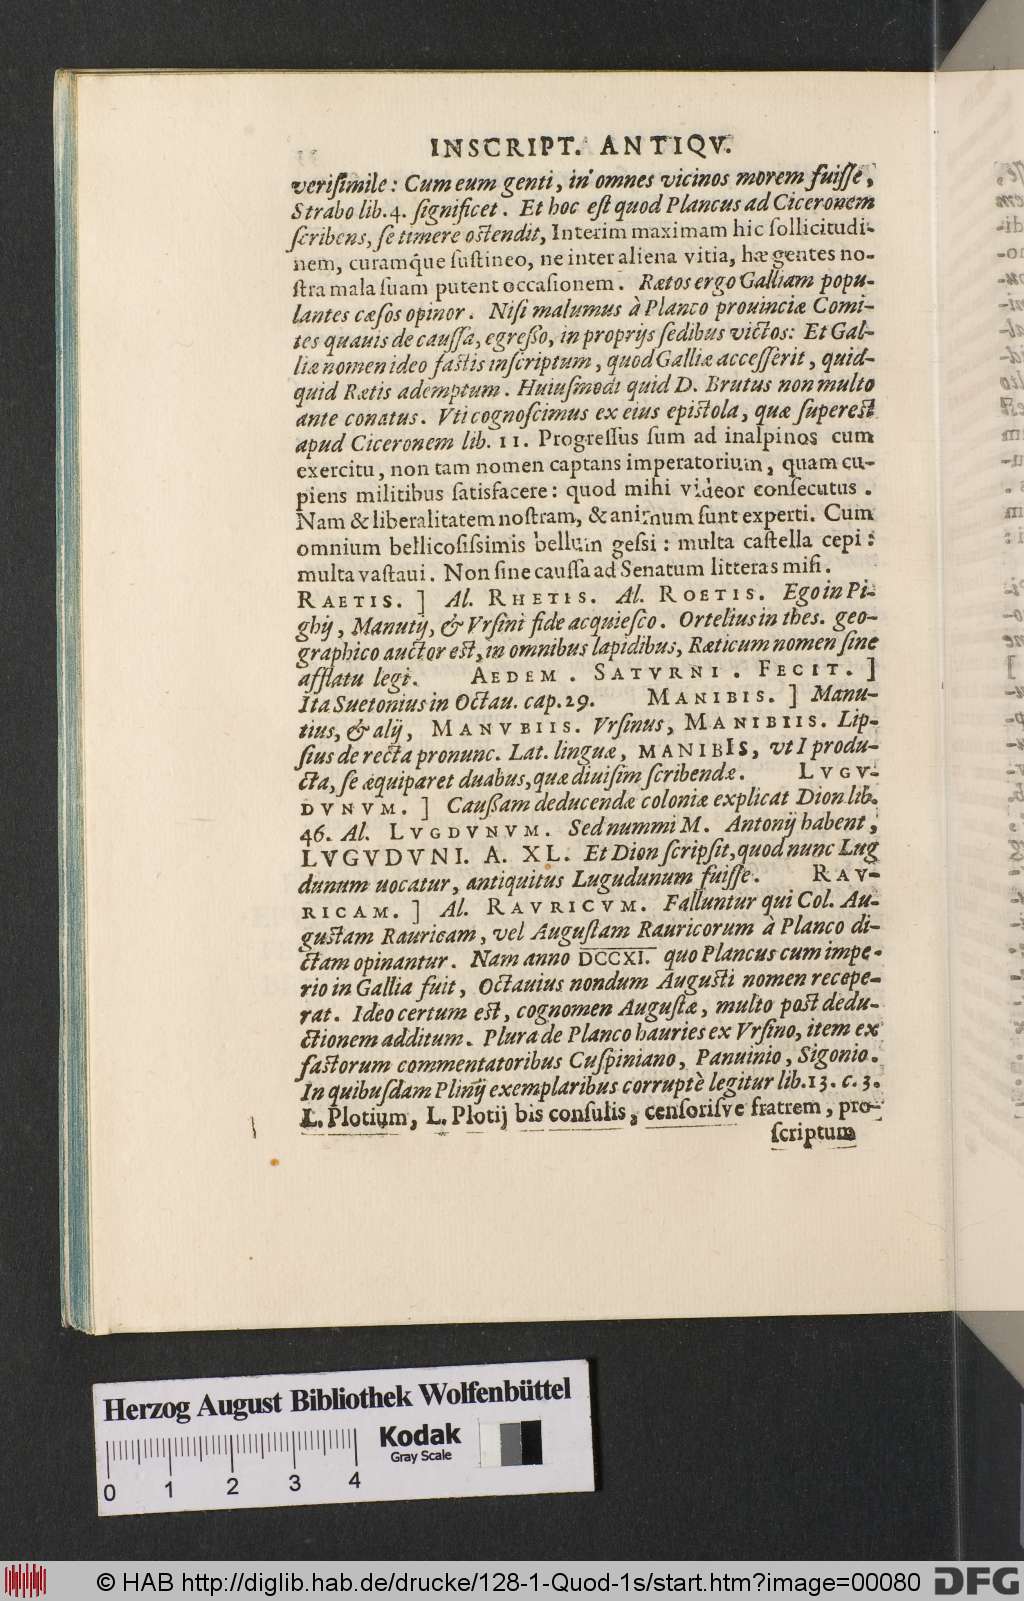 INSCRIPT. ANTIQV.
veriſimile: Cum eum genti, in omnes vicinos morem fuiſſe,
Strabo lib. 4. ſignificet. Et hoc eſt quod Plancus ad Ciceronem
ſcribens, ſe timere oſtendit, Interim maximam hic ſollicitudi-
nem, curamq́ue ſuſtineo, ne inter aliena vitia, hæ gentes no-
ſtra mala ſuam putent occaſionem. Rætos ergo Galliam popu-
lantes cæſos opinor. Niſi malumus à Planco prouinciæ Comi-
tes quauis de cauſſa, egreſſo, in proprijs ſedibus victos: Et Gal-
liæ nomen ideo faſtis inſcriptum, quod Galliæ acceſſerit, quid-
quid Rætis ademptum. Huiuſmodi quid D. Brutus non multo
ante conatus. Vti cognoſcimus ex eius epiſtola, quæ ſupereſt
apud Ciceronem lib. 11. Progreſſus ſum ad inalpinos cum
exercitu, non tam nomen captans imperatorium, quam cu-
piens militibus ſatisfacere: quod mihi videor conſecutus.
Nam & liberalitatem noſtram, & animum ſunt experti. Cum
omnium bellicoſiſsimis bellum geſsi: multa caſtella cepi:
multa vaſtaui. Non ſine cauſſa ad Senatum litteras miſi.
RAETIS. ] Al. RHETIS. Al. ROETIS. Ego in Pi-
ghij, Manutij, & Vrſini fide acquieſco. Ortelius in theſ. geo-
graphico auctor eſt, in omnibus lapidibus, Ræticum nomen ſine
afflatu legi. AEDEM. SATVRNI. FECIT. ]
Ita Suetonius in Octau. cap. 29. MANIBIS. ] Manu-
tius, & alij, MANVBIIS. Vrſinus, MANIBIIS. Lip-
ſius de recta pronunc. Lat. linguæ, MANIBIS, vt I produ-
cta, ſe æquiparet duabus, quæ diuiſim ſcribendæ. LVGV-
DVNVM. ] Cauſſam deducendæ coloniæ explicat Dion lib.
46. Al. LVGDVNVM. Sed nummi M. Antonij habent,
LVGVDVNI. A. XL. Et Dion ſcripſit, quod nunc Lug
dunum uocatur, antiquitus Lugudunum fuiſſe. RAV-
RICAM. ] Al. RAVRICVM. Falluntur qui Col. Au-
guſtam Rauricam, vel Auguſtam Rauricorum à Planco di-
ctam opinantur. Nam anno DCCXI. quo Plancus cum impe-
rio in Gallia fuit, Octauius nondum Auguſti nomen recepe-
rat. Ideo certum eſt, cognomen Auguſtæ, multo poſt dedu-
ctionem additum. Plura de Planco hauries ex Vrſino, item ex
faſtorum commentatoribus Cuſpiniano, Panuinio, Sigonio.
In quibuſdam Plinij exemplaribus corruptè legitur lib. 13. c. 3.
L. Plotium, L. Plotij bis conſulis, cenſoriſve fratrem, pro-
ſcriptum
Herzog August Bibliothek Wolfenbüttel
Kodak
Gray Scale
0 1 2 3 4
© HAB http://diglib.hab.de/drucke/128-1-Quod-1s/start.htm?image=00080 DFG